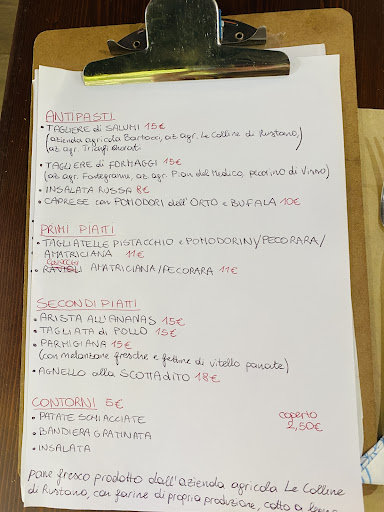 ANTIPASTI
• TAGLIERE di SALUMI 15€
(azienda agricola Bartocci, az. agr. Le Colline di Rustano,
az. agr. Trionfi Onorati)
• TAGLIERE di FORMAGGI 15€
(az. agr. Fontegranne, az. agr. Pian del Medico, pecorino di Visso)
• INSALATA RUSSA 8€
• CAPRESE con POMODORI dell'ORTO e BUFALA 10€
PRIMI PIATTI
• TAGLIATELLE PISTACCHIO e POMODORINI/PECORARA/
AMATRICIANA 11€
• RAVIOLI AMATRICIANA/PECORARA 11€
SECONDI PIATTI
• ARISTA ALL'ANANAS 15€
• TAGLIATA di POLLO 15€
• PARMIGIANA 15€
(con melanzane fresche e fettine di vitello panate)
• AGNELLO alla SCOTTADITO 18€
CONTORNI 5€
• PATATE SCHIACCIATE
• BANDIERA GRATINATA
• INSALATA
coperto
2,50€
pane fresco prodotto dall'azienda agricola Le Colline
di Rustano, con farine di propria produzione, cotto a legna